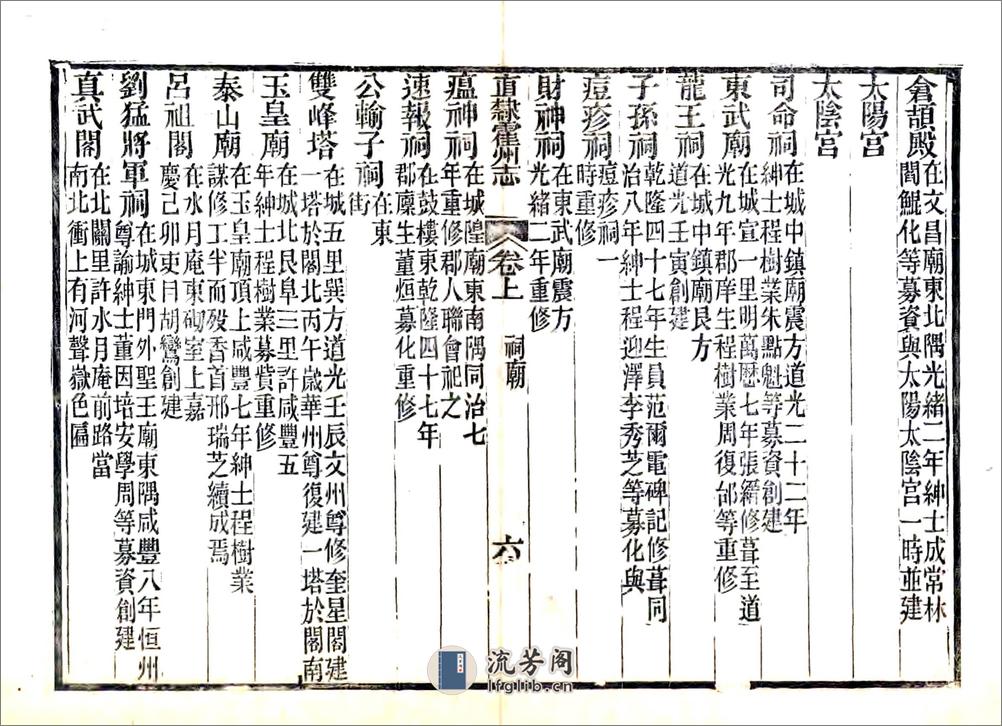 倉頡殿
在文昌廟東北隅光緒二年紳士成常林
閻鯤化等募資與太陽太陰宮一時並建
太陽宮
太陰宮
司命祠
在城中鎮廟震方道光二十二年
紳士程樹業朱點魁等募資創建
東武廟
在城宣一里明萬曆七年張縉修葺至道
光九年郡庠生程樹業周復邰等重修
龍王祠
在城中鎮廟艮方
道光壬寅創建
子孫祠
乾隆四十七年生員范爾電碑記修葺同
治八年紳士程迎澤李秀芝等募化與
痘疹祠一
時重修
痘疹祠
財神祠
在東武廟震方
光緒二年重修
直隸霍州志
卷上
祠廟
六
瘟神祠
在城隍廟東南隅同治七
年重修郡人聯會祀之
速報祠
在鼓樓東乾隆四十七年
郡廩生董烜募化重修
公輸子祠
在東
街
雙峰塔
在城五里巽方道光壬辰文州尊修奎星閣建
一塔於閣北丙午歲華州尊復建一塔於閣南
玉皇廟
在城北艮阜三里許咸豐五
年紳士程樹業募貲重修
泰山廟
在玉皇廟頂上咸豐七年紳士程樹業
謀修工半而歿香首邢瑞芝續成焉
呂祖閣
在水月庵東砌室上嘉
慶己卯吏目胡鸞創建
劉猛將軍祠
在城東門外聖王廟東隅咸豐八年恒州
尊諭紳士董因培安學周等募資創建
真武閣
在北關里許水月庵前路當
南北衝上有河聲嶽色匾
流芳阁
lfglib.cn